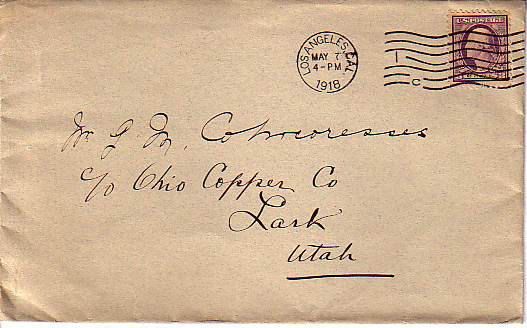 LOS ANGELES, CAL.
MAY 7
4-PM
1918
1
C
U.S. POSTAGE
Mr
c/o Ohio Copper Co
Lark
Utah